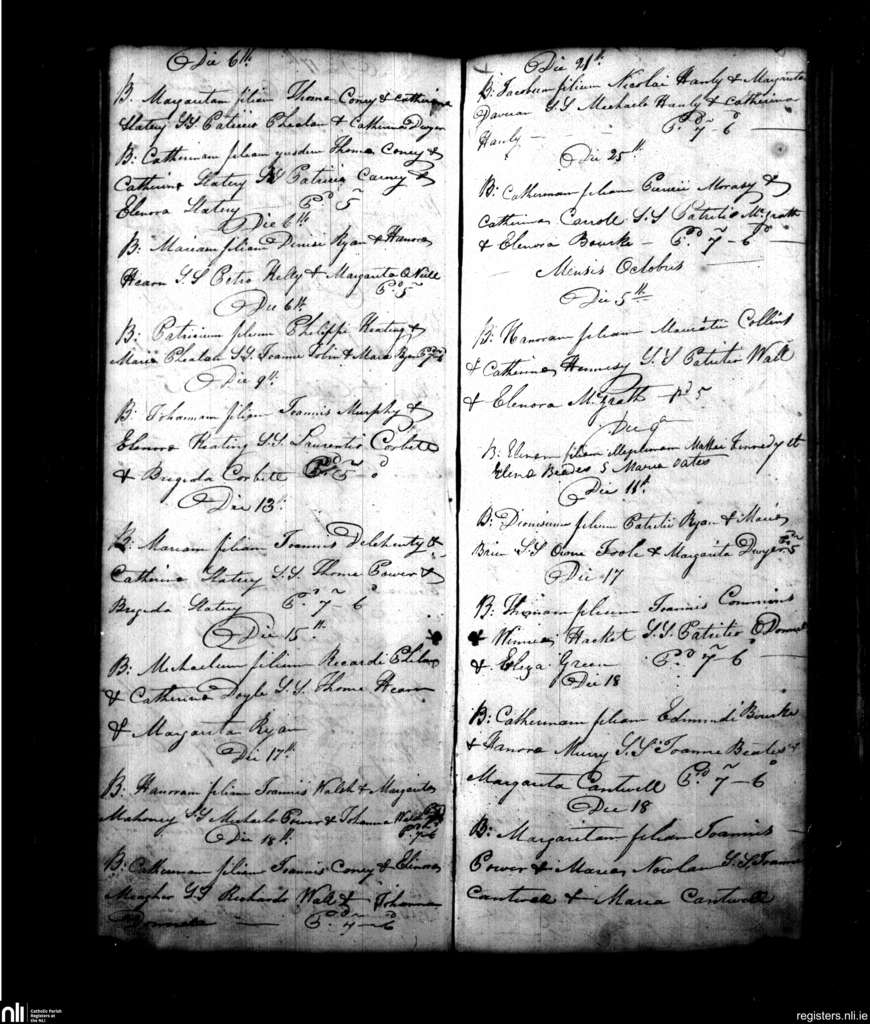 Die 6th
B. Margaritam filiam Thome Coney & Catherine
Slatery SS Patricio Phealan & Catherina Dwyer
B: Catherinam filiam ejusdem Thome Coney &
Catherina Slatery SS Patricio Carney &
Elenora Slatery Pd 5
Die 6th
B: Mariam filiam Denisi Ryan & Hanora
Hearn S.S Petro Kelly & Margarita O Neill
Pd 5
Die 6th
B: Patricium filium Philippi Keating &
Maria Phealan SS Joanne Tobin & Maria Ryan
Die 9th
B: Johannam filiam Joannis Murphy &
Elenora Keating S.S. Laurentio Corbett
& Brigida Corbett Pd 5 - 0
Die 13
B. Mariam filiam Joannis Delehenty &
Catherina Slatery S.S. Thome Power &
Brigida Slatery Pd 7 - 6
Die 15th
B: Michaelem filium Ricardi Phelan
& Catherina Doyle S.S. Thome Hearn
& Margarita Ryan
Die 17th
B: Hanoram filiam Joannis Walsh & Margarita
Mahoney S.S Michaele Power & Johanna Walsh
Die 18th
B: Catherinam filiam Joannis Coney & Elinora
Meagher S.S Richardo Wall & Johanna
Pd 7 - 6
Die 21th
B: Jacobum filium Nicolai Hanly & Margarita
S.S Michaele Hanly & Catherina
Hanly Pd 7 - 6
Die 25th
B: Catherinam filiam &
Catherina Carroll S.S Patritio McGrath
& Elenora Bourke - Pd 7 - 6
Mensis Octobris
Die 5th
B: Hanoram filiam Mauritii Collins
& Catherina Hennesy S.S Patritio Wall
& Elenora McGrath pd 5
Die 9
B: filiam Kennedy et
S Maria Oates
Die 11th
B: Dionisium filium Patritii Ryan & Maria
Brien S.S Owne Toole & Margarita Dwyer
Die 17
B: Thomam filium Joannis Commins
& Hacket S.S. Patritio O Donnel
& Eliza Green Pd 7 - 6
Die 18
B: Catherinam filiam Edmundi Bourke
& Hanora Murry S.S Joanne &
Margarita Cantwell Pd 7 - 6
Die 18
B: Margaritam filiam Joannis
Power & Maria Nowlan S.S. Joanne
Cantwell & Maria Cantwell
nli Catholic Parish
Registers at
the NLI
registers.nli.ie